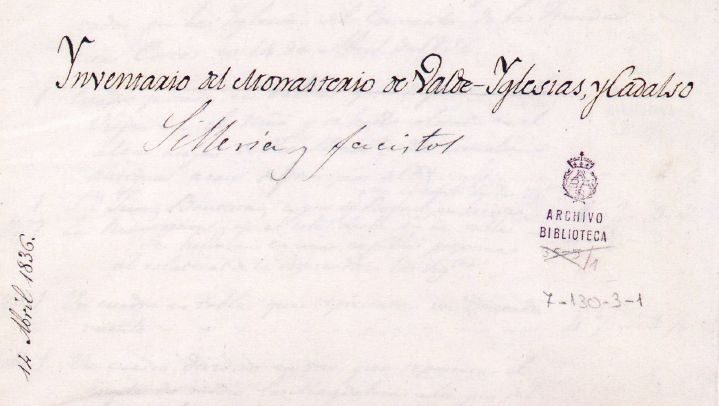 Ynventario del Monasterio de Valde-Yglesias, y Cadalso
Silleria y facistol
ARCHIVO
BIBLIOTECA
7-130-3-1
12 Abril 1836.